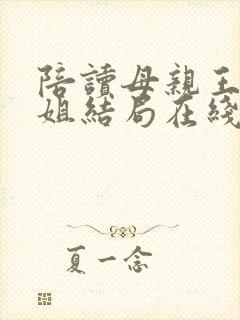 陪讀母親王
姐結局在綫
夏一念